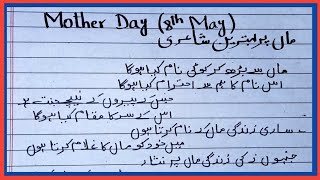 Mother Day (8th May)
ماں پر بہترین شاعری
ماں سے بڑھ کر کوئی نام کیا ہوگا
اس نام کا ہم سے احترام کیا ہوگا
جس کے پیروں کے نیچے جنت ہے
اس کے سر کا مقام کیا ہوگا
ساری زندگی ماں کے نام کرتا ہوں
میں خود کو ماں کا غلام کرتا ہوں
جنہوں نے کی زندگی ماں پہ نثار